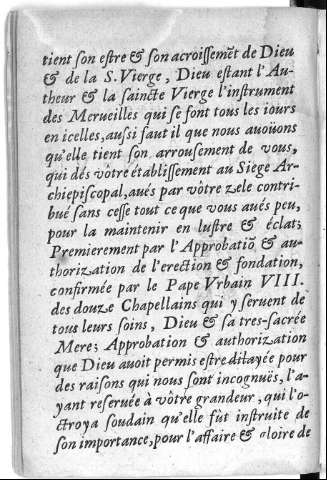 tient ſon eſtre & ſon acroiſſemẽt de Dieu
& de la S. Vierge, Dieu eſtant l'Au-
theur & la ſaincte Vierge l'inſtrument
des Merueilles qui ſe font tous les iours
en icelles, auſſi faut il que nous auoüons
qu'elle tient ſon arrouſement de vous,
qui dés vôtre établiſſement au Siege Ar-
chiepiſcopal, aués par vôtre zele contri-
bué ſans ceſſe tout ce que vous aués peu,
pour la maintenir en luſtre & éclat;
Premierement par l'Approbatiõ & au-
thorization de l'erection & fondation,
confirmée par le Pape Vrbain VIII.
des douze Chapellains qui y ſeruent de
tous leurs ſoins, Dieu & ſa tres-ſacrée
Mere; Approbation & authorization
que Dieu auoit permis eſtre dilayée pour
des raiſons qui nous ſont incognuës, l'a-
yant reſeruée à vôtre grandeur, qui l'o-
ctroya ſoudain qu'elle fût inſtruite de
ſon importance, pour l'affaire & gloire de